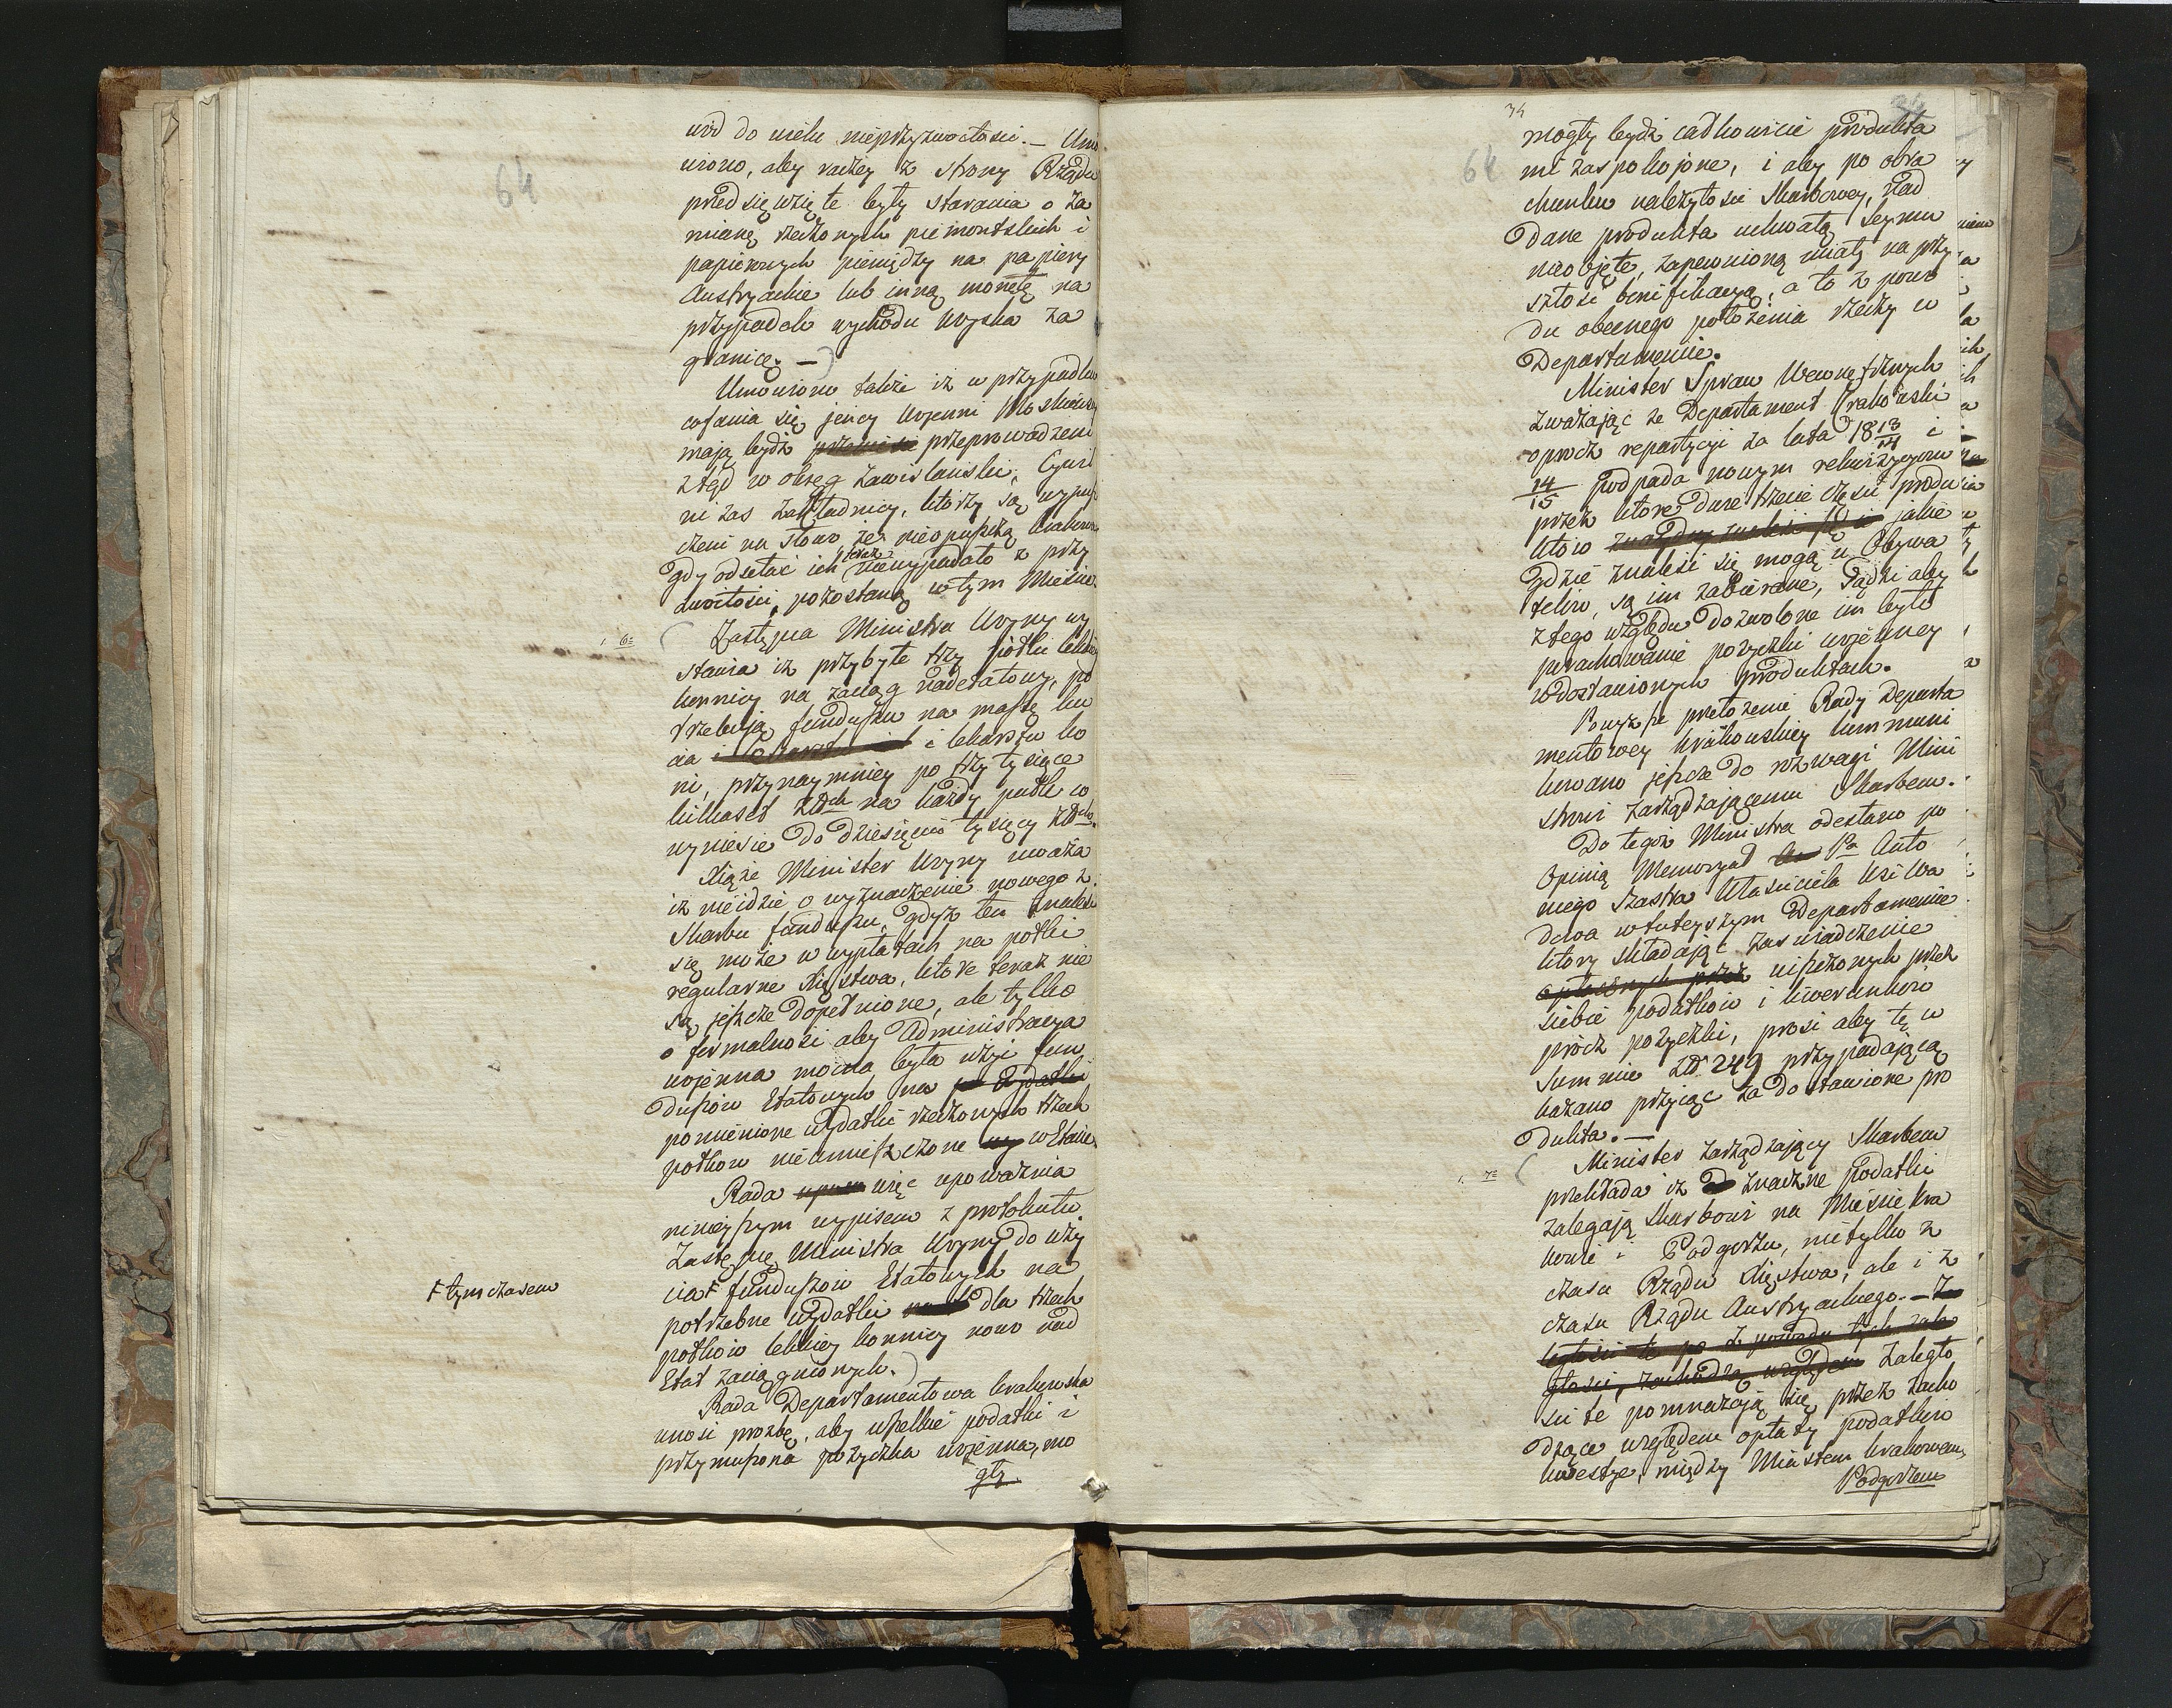 64
wód do wielu nieprzyzwoitości. – Umó
wiono, aby raczey z strony Rządu
przedsięwzięte były starania o za
mianę rzeczonych piemontskich i
papierowych pieniędzy na papiery
Austryackie lub inną monetę na
przypadek wychodu woyska za
granicę. –)
Umówiono także iż w przypadku
cofania się jeńcy wojenni Moskiewscy
mają bydź przeprowadzeni
ztąd w okręg zawiślański, Cywil
ni zaś zakładnicy, którzy są wypusz
czeni na słowo, że nieopuszczą Krakowa
gdy odsełać ich teraz niewypadało z przy
zwoitości, pozostaną w tym Mieście.
1. 6=
( Zastępca Ministra Woyny wy
stawia iż przybyłe trzy półki lekkiey
konnicy na zaciąg nadetatowy, po
trzebują funduszu na massę ku
cia i lekarstw ko
ni, przynaymniey po trzy tysiące
kilkaset złch na każdy pułk co
wyniesie do dziesięciu tysięcy złch.
Xiąże Minister Woyny uważa
iż nieidzie o wyznaczenie nowego z
Skarbu funduszu, gdyż ten znaleść
się może w wypłatach na półki
regularne Xięstwa, które teraz nie
są jeszcze dopełnione, ale tylko
o formalność aby Administracya
wojenna mocna była użyć fun
duszów Etatowych na
pomienione wydatki rzeczonych trzech
półkow nieumieszczone w Etacie.
Rada więc upoważnia
ninieyszym wypisem z protokułu
Zastępcę Ministra Woyny do uży
cia + funduszów Etatowych na
+ tymczasem
potrzebne wydatki dla trzech
półków lekkiey konnicy nowo nad
Etat zaciągnionych.)
Rada Departamentowa krakowska
wnosi prozbę, aby wszelkie podatki i
przymuszona pożyczka wojenna, mo
gły
34
64
mogły bydź całkowicie produkta
mi zaspokojone, i aby po obra
chunku należytości Skarbowey, nad
dane produkta uchwałą Seymu
nieobjęte, zapewnioną miały na przy
szłość bonifikacyą, a to z powo
du obecnego położenia rzeczy w
Departamencie.
Minister Spraw Wewnętrznych
zważając że Departament Krakowski
oprócz repartycyi za lata 18 13/14 i
14/15 podpada nowym rekwizycyom
przez które dwie trzecie części produ
któw jakie
gdzie znaleść się mogą u Obywa
telów, są im zabierane, Sądzi aby
z tego względu dozwolone im było
porachowanie pożyczki wojenney
w dostawionych produktach.
Powyższe przełożenie Rady Departa
mentowey krakowskiey kommuni
kowano jeszcze do rozwagi Mini
strowi zarządzającemu Skarbem.
Do tegoż Ministra odesłano po
Opinią Memoryał Pa Anto
niego Szastra Właściciela Wsi Wa
dowa w tuteyszym Departamencie
który składając zaświadczenie
uiszczonych przez
siebie podatków i liwerunków
prócz pożyczki, prosi aby tę w
Summie Zł 249 przypadającą
kazano przyiąć za dostawione pro
dukta. –
1. 7=
( Minister zarządzający Skarbem
przekłada iż znaczne podatki
zalegają Skarbowi na Mieście kra
kowie i Podgorzu, nietylko z
czasu Rządu Xięstwa, ale i z
czasu Rządu Austryackiego. –
Zaległo
ści te pomnażają się przez zacho
dzące względem opłaty podatków
kwestye, między Miastem krakowem,
Podgorzem